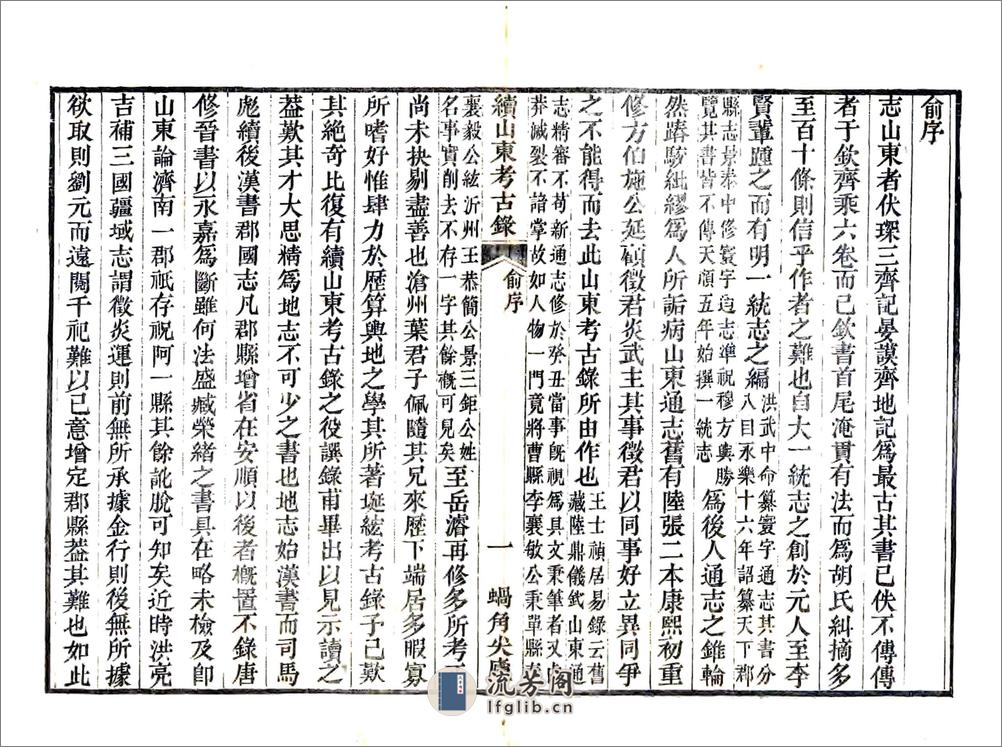 俞序
志山東者伏琛三齊記晏謨齊地記爲最古其書已佚不傳傳
者于欽齊乘六卷而已欽書首尾淹貫有法而爲胡氏糾摘多
至百十條則信乎作者之難也自大一統志之創於元人至李
賢輩踵之而有明一統志之編洪武中命纂寰宇通志其書分八目永樂十六年詔纂天下郡
縣志景泰中修寰宇通志準祝穆方輿勝覽其書皆不傳天順五年始撰一統志爲後人通志之錐輪
然踳駮紕繆爲人所詬病山東通志舊有陸張二本康熙初重
修方伯施公延顧徵君炎武主其事徵君以同事好立異同爭
之不能得而去此山東考古錄所由作也王士禎居易錄云舊藏陸鼎儀釴山東通
志精審不苟新通志修於癸丑當事旣視爲具文秉筆者又鹵莽滅裂不諳掌故如人物一門竟將曹縣李襄敏公秉單縣秦
續山東考古錄 俞序 一 蝸角尖廬
襄毅公紘沂州王恭簡公景三鉅公姓名事實削去不存一字其餘槪可見矣至岳濬再修多所考
尚未抉剔盡善也滄州葉君子佩隨其兄來歷下端居多暇寡
所嗜好惟肆力於歷算輿地之學其所著埏紘考古錄予已歎
其絶奇比復有續山東考古錄之役譔錄甫畢出以見示讀之
葢歎其才大思精爲地志不可少之書也地志始漢書而司馬
彪續後漢書郡國志凡郡縣增省在安順以後者槪置不錄唐
修晉書以永嘉爲斷雖何法盛臧榮緒之書具在略未檢及卽
山東論濟南一郡祇存祝阿一縣其餘訛脫可知矣近時洪亮
吉補三國疆域志謂徵炎運則前無所承據金行則後無所據
欲取則劉元而遠闊千祀難以己意增定郡縣葢其難也如此
流芳阁
lfglib.cn